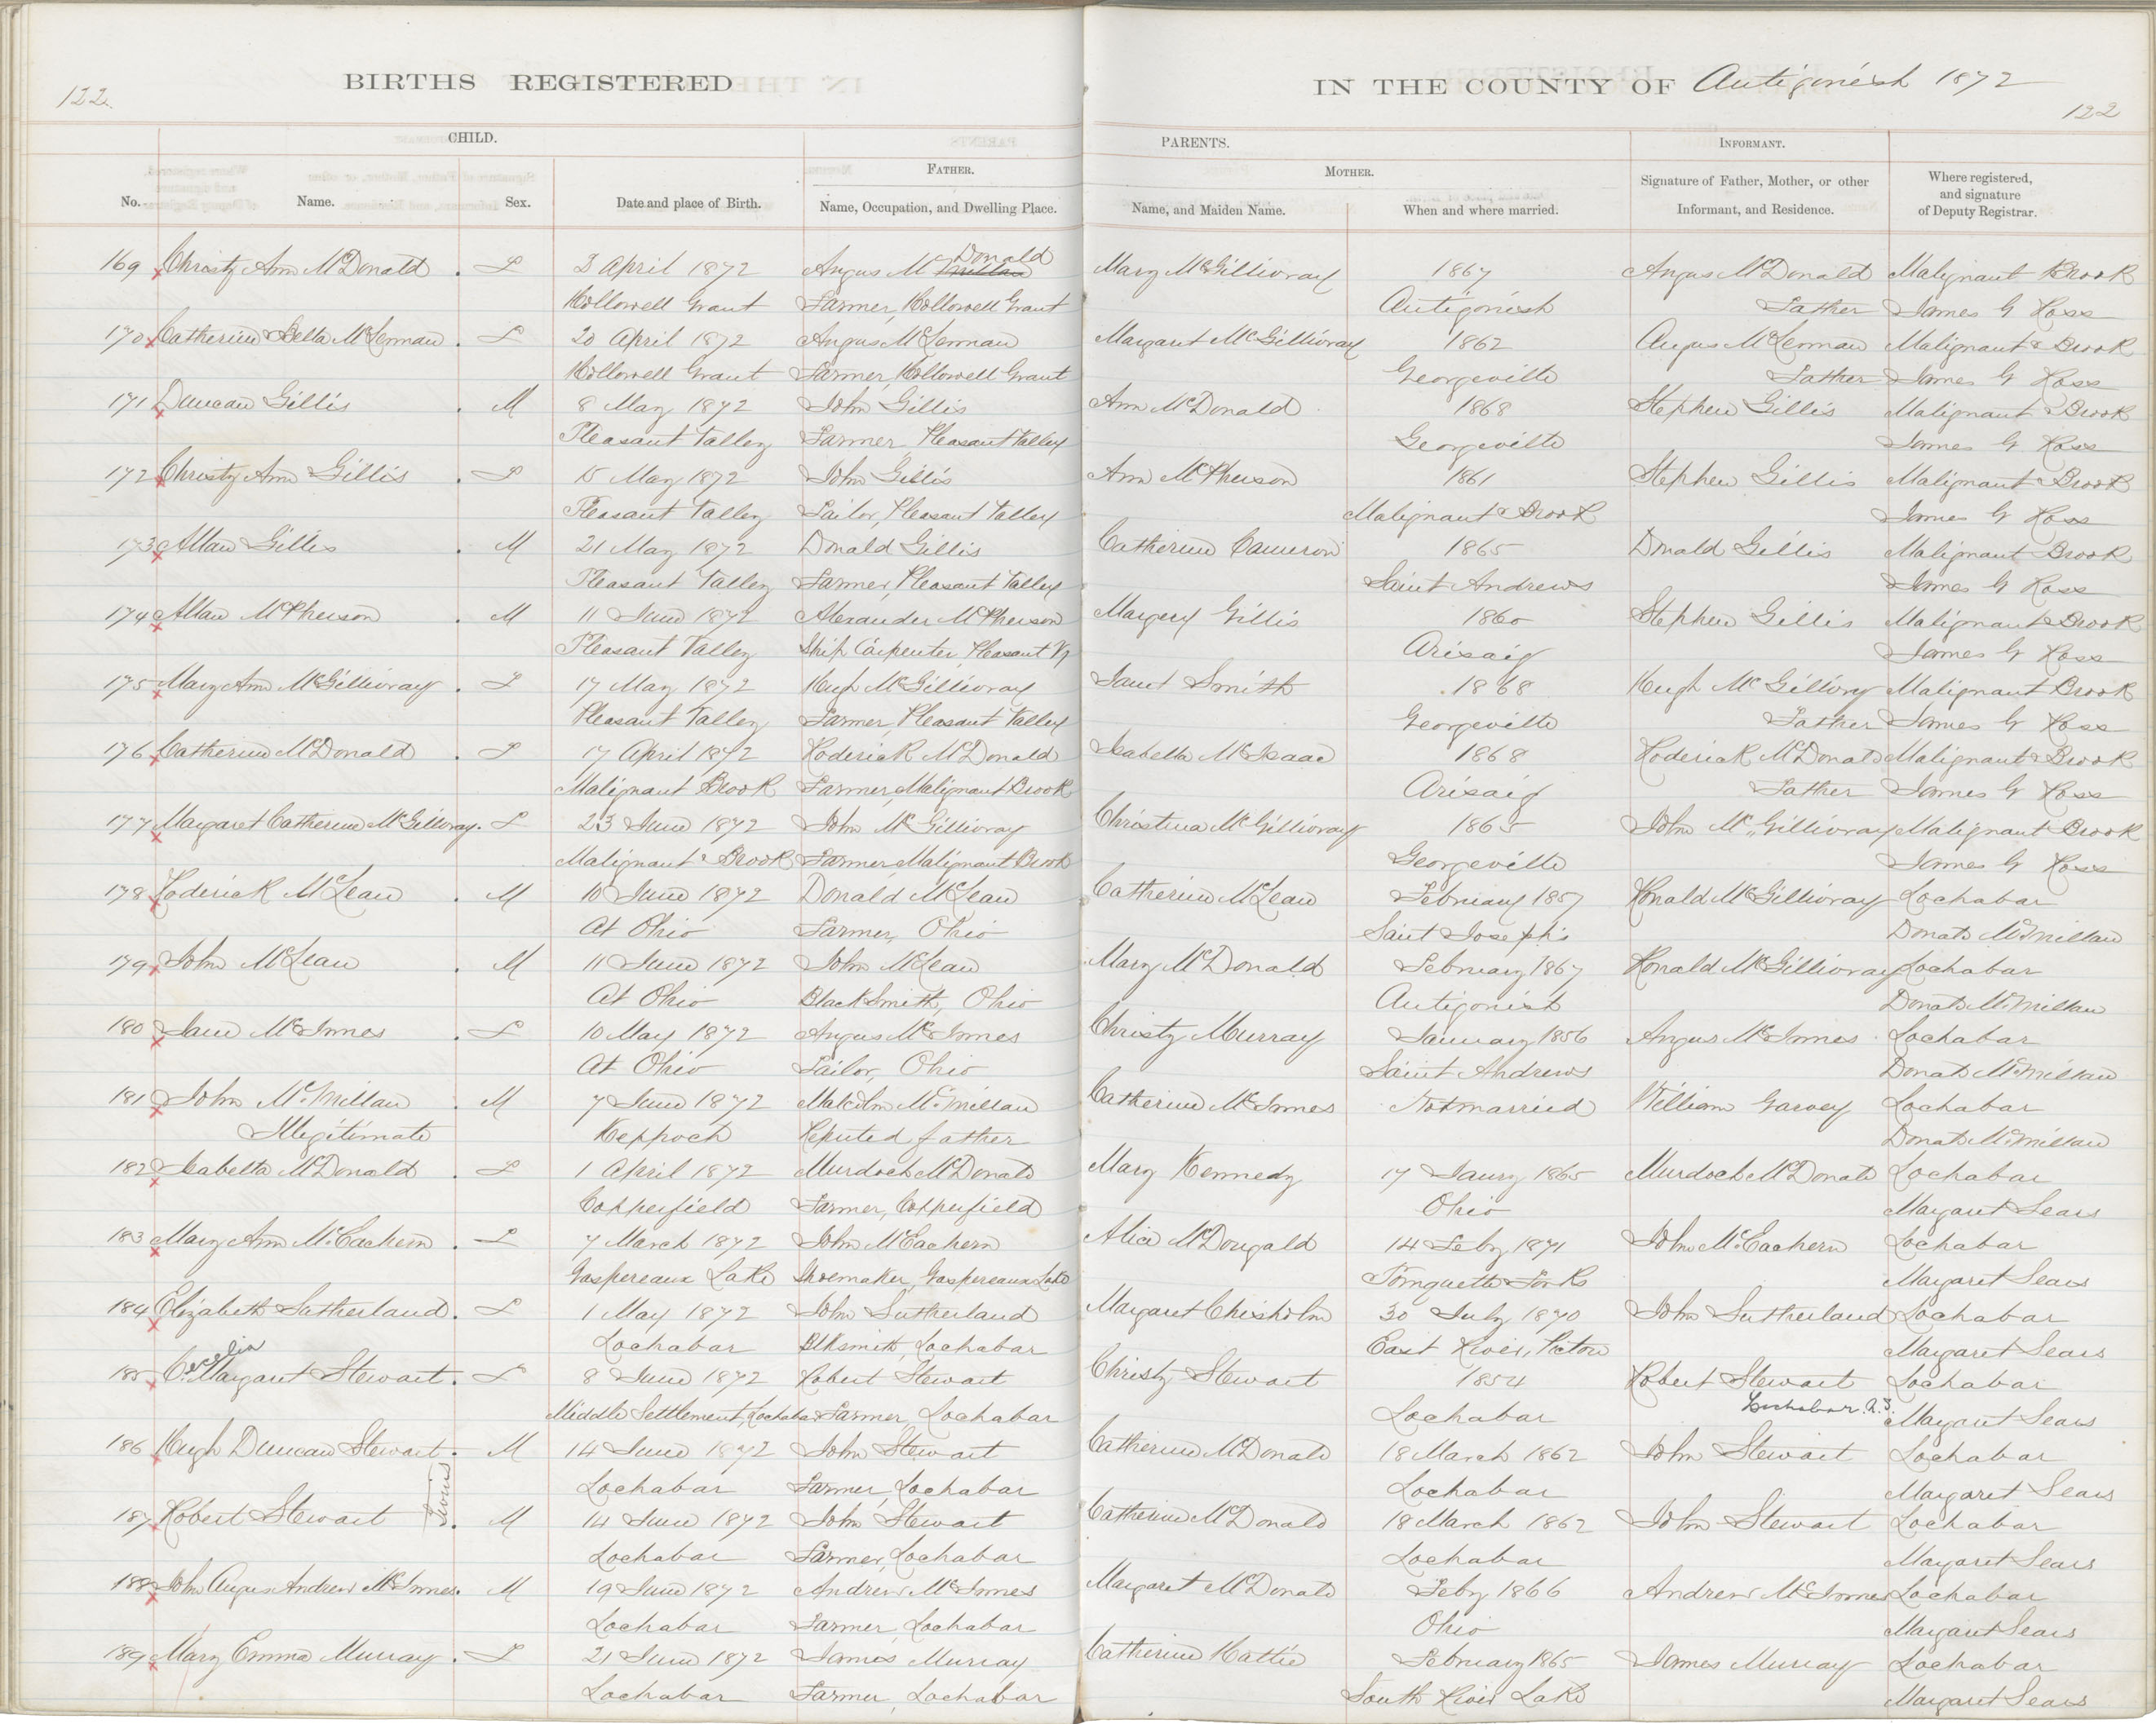 122
BIRTHS REGISTERED
IN THE COUNTY OF Antigonish 1872
122
CHILD.
PARENTS.
INFORMANT.
FATHER.
MOTHER.
No. Name. Sex. Date and place of Birth. Name, Occupation, and Dwelling Place. Name, and Maiden Name. When and where married. Signature of Father, Mother, or other Informant, and Residence. Where registered, and signature of Deputy Registrar.
169 Christy Ann McDonald . F 3 April 1872 Angus Mc Donald Mary McGillivray 1867 Angus McDonald Malignant Brook
Hollowell Grant Farmer, Hollowell Grant Antigonish Father James G Ross
170 Catherine Bella McLennan . F 20 April 1872 Angus McLennan Margaret McGillivray 1862 Angus McLennan Malignant Brook
Hollowell Grant Farmer, Hollowell Grant Georgeville Father James G Ross
171 Duncan Gillis . M 8 May 1872 John Gillis Ann McDonald 1868 Stephen Gillis Malignant Brook
Pleasant Valley Farmer, Pleasant Valley Georgeville James G Ross
172 Christy Ann Gillis . F 15 May 1872 John Gillis Ann McPherson 1861 Stephen Gillis Malignant Brook
Pleasant Valley Tailor, Pleasant Valley Malignant Brook James G Ross
173 Allan Gillis . M 21 May 1872 Donald Gillis Catherine Cameron 1865 Donald Gillis Malignant Brook
Pleasant Valley Farmer, Pleasant Valley Saint Andrews James G Ross
174 Allan McPherson . M 11 June 1872 Alexander McPherson Margery Gillis 1860 Stephen Gillis Malignant Brook
Pleasant Valley Ship Carpenter, Pleasant Vy Arisaig James G Ross
175 Mary Ann McGillivray . F 17 May 1872 Hugh McGillivray Janet Smith 1868 Hugh McGillivry Malignant Brook
Pleasant Valley Farmer, Pleasant Valley Georgeville Father James G Ross
176 Catherine McDonald . F 17 April 1872 Roderick McDonald Isabella McIsaac 1868 Roderick McDonald Malignant Brook
Malignant Brook Farmer, Malignant Brook Arisaig Father James G Ross
177 Margaret Catherine McGillivray . F 23 June 1872 John McGillivray Christina McGillivray 1865 John McGillivray Malignant Brook
Malignant Brook Farmer, Malignant Brook Georgeville James G Ross
178 Roderick McLean . M 10 June 1872 Donald McLean Catherine McLean February 1857 Ronald McGillivray Lochabar
At Ohio Farmer, Ohio Saint Joseph's Donald McMillan
179 John McLean . M 11 June 1872 John McLean Mary McDonald February 1867 Ronald McGillivray Lochabar
At Ohio BlackSmith, Ohio Antigonish Donald McMillan
180 Jane McInnes . F 10 May 1872 Angus McInnes Christy Murray January 1856 Angus McInnes Lochabar
At Ohio Tailor, Ohio Saint Andrews Donald McMillan
181 John McMillan . M 7 June 1872 Malcolm McMillan Catherine McInnes Not married William Garvey Lochabar
Illegitimate Keppoch Reputed father Donald McMillan
182 Isabella McDonald . F 1 April 1872 Murdoch McDonald Mary Kennedy 17 Jany 1865 Murdoch McDonald Lochabar
Copperfield Farmer, Copperfield Ohio Margaret Sears
183 Mary Ann McEachern . F 7 March 1872 John McEachern Alice McDougald 14 Feby 1871 John McEachern Lochabar
Gaspereaux Lake Shoemaker, Gaspereaux Lake Forks Margaret Sears
184 Elizabeth Sutherland . F 1 May 1872 John Sutherland Margaret Chisholm 30 July 1870 John Sutherland Lochabar
Lochabar Blksmith, Lochabar East River, Pictou Margaret Sears
185 Cecelia Margaret Stewart . F 8 June 1872 Robert Stewart Christy Stewart 1854 Robert Stewart Lochabar
Middle Settlement, Lochabar Farmer, Lochabar Lochabar Lochabar. Margaret Sears
186 Hugh Duncan Stewart . M 14 June 1872 John Stewart Catherine McDonald 18 March 1862 John Stewart Lochabar
Twins
Lochabar Farmer, Lochabar Lochabar Margaret Sears
187 Robert Stewart . M 14 June 1872 John Stewart Catherine McDonald 18 March 1862 John Stewart Lochabar
Lochabar Farmer, Lochabar Lochabar Margaret Sears
188 John Angus Andrew McInnes . M 19 June 1872 Andrew McInnes Margaret McDonald Feby 1866 Andrew McInnes Lochabar
Lochabar Farmer, Lochabar Ohio Margaret Sears
189 Mary Emma Murray . F 21 June 1872 James Murray Catherine Hattie February 1865 James Murray Lochabar
Lochabar Farmer, Lochabar South River Lake Margaret Sears